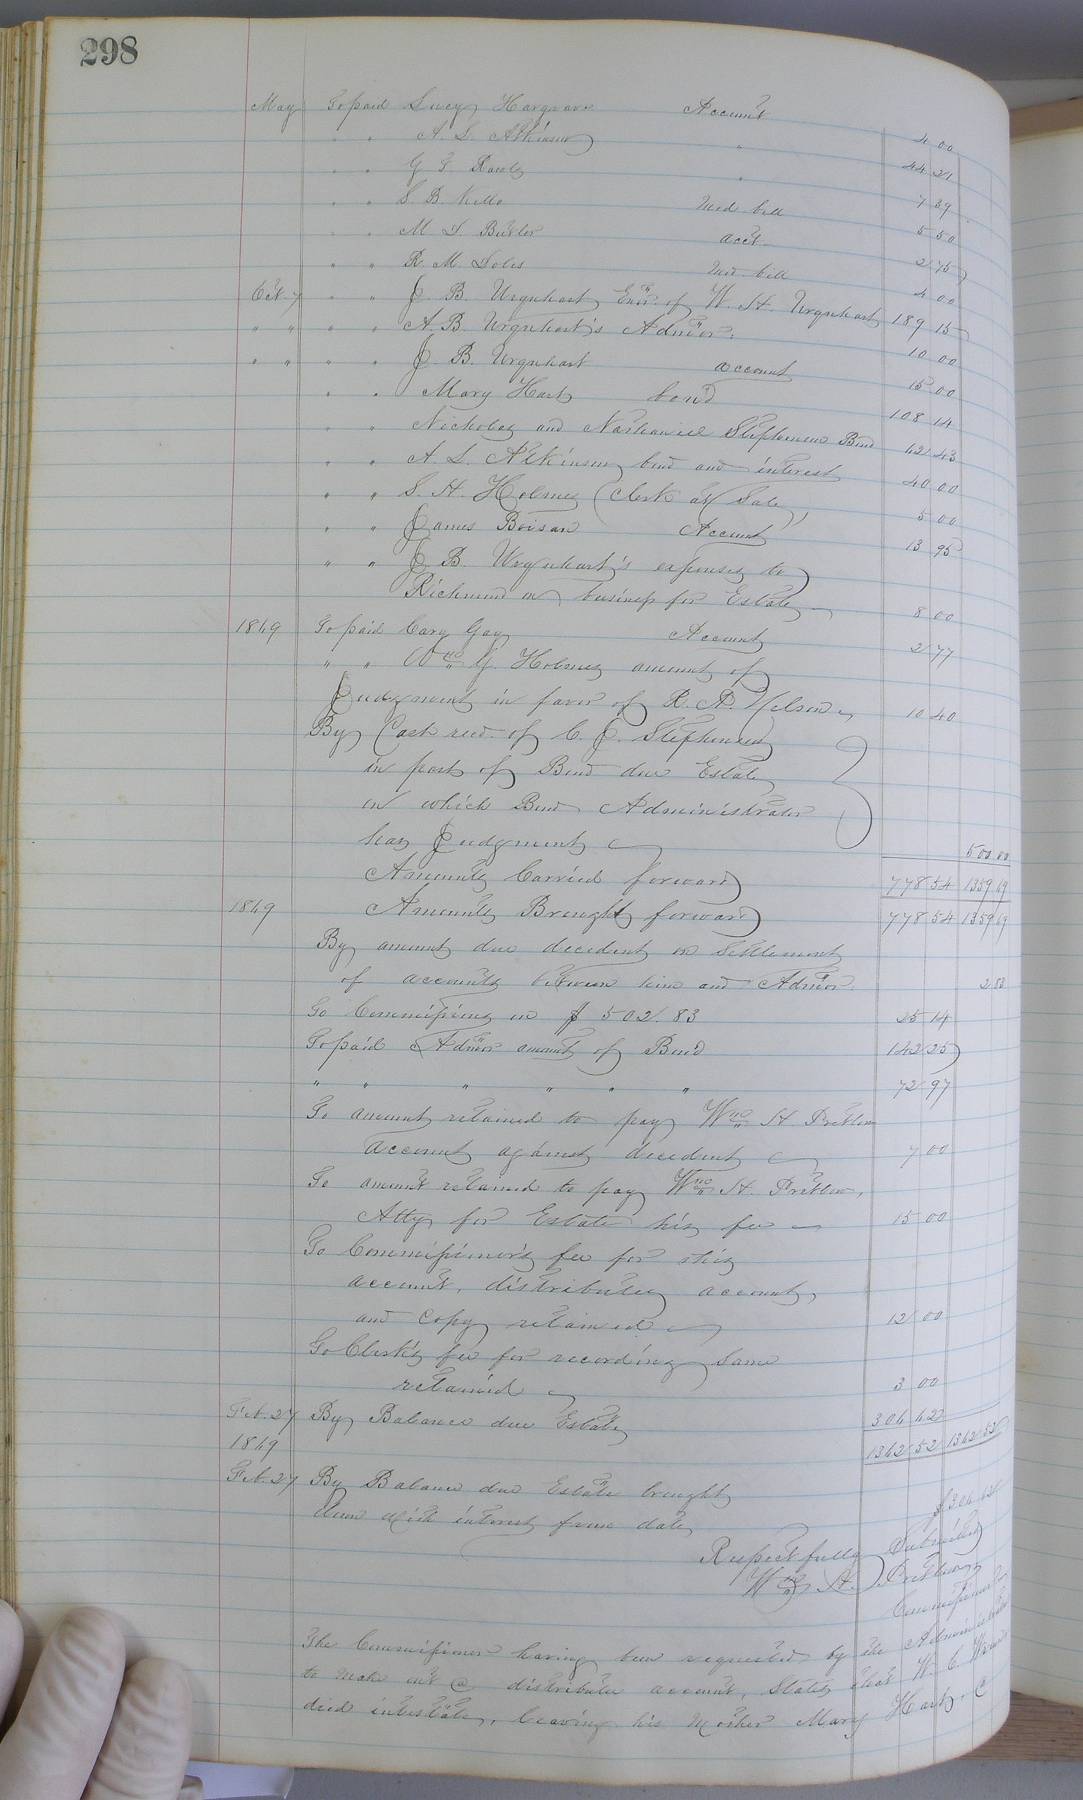 298
May To paid Lucy Hargrave Account 4 00
" " A. L. Atkinson " 44 21
" " G. F. " 7 89
" " S. B. Kello Med. bill 5 50
" " M. L. Butler acct. 2 75
" " R. M. Med. bill 4 00
Oct. 7 " " J. B. Urquhart Exor. of W. H. Urquhart 189 15
" " " " A. B. Urquhart's Admor. 10 00
" " " " J. B. Urquhart account 15 00
" " Mary Hart bond 108 14
" " Nicholas and Nathaniel Stephenson Bond 42 43
" " A. L. Atkinson bond and interest 40 00
" " S. H. Holmes (Clerk at Sale) 5 00
" " James Account 13 95
" " J. B. Urquhart's expenses to
Richmond on business for Estate 8 00
1849 To paid Cary Gay Account 2 77
" " Wm. J. Holmes amount of
Judgment in favor of R. A. Nelson 10 40
By Cash recd. of C. J. Stephenson
in part of Bond due Estate
on which Bond Administrator
has Judgment 500 00
Amounts Carried forward 778 54 1359 69
1849 Amounts Brought forward 778 54 1359 69
By amount due decedent on Settlement
of accounts between him and Admor. 2 83
To Commissions on $502.83 25 14
To paid Admor amount of Bond 142 25
" " " " " " 72 97
To amount retained to pay Wm. H. Pretlow
account against decedent 7 00
To amount retained to pay Wm. H. Pretlow,
Atty for Estate his fee 15 00
To Commissioner's fee for this
account, distributee account,
and copy retained 12 00
To Clerk's fee for recording same
retained 3 00
Feb. 27 By Balance due Estate 306 62
1849 1362 52 1362 52
Feb. 27 By Balance due Estate brought
down with interest from date $306 62
Respectfully Submitted
Wm. H. Pretlow
Commissioner
The Commissioner having been requested by the Administrator
to make out a distributee account, States that W. C.
died intestate, leaving his Mother Mary Hart, C